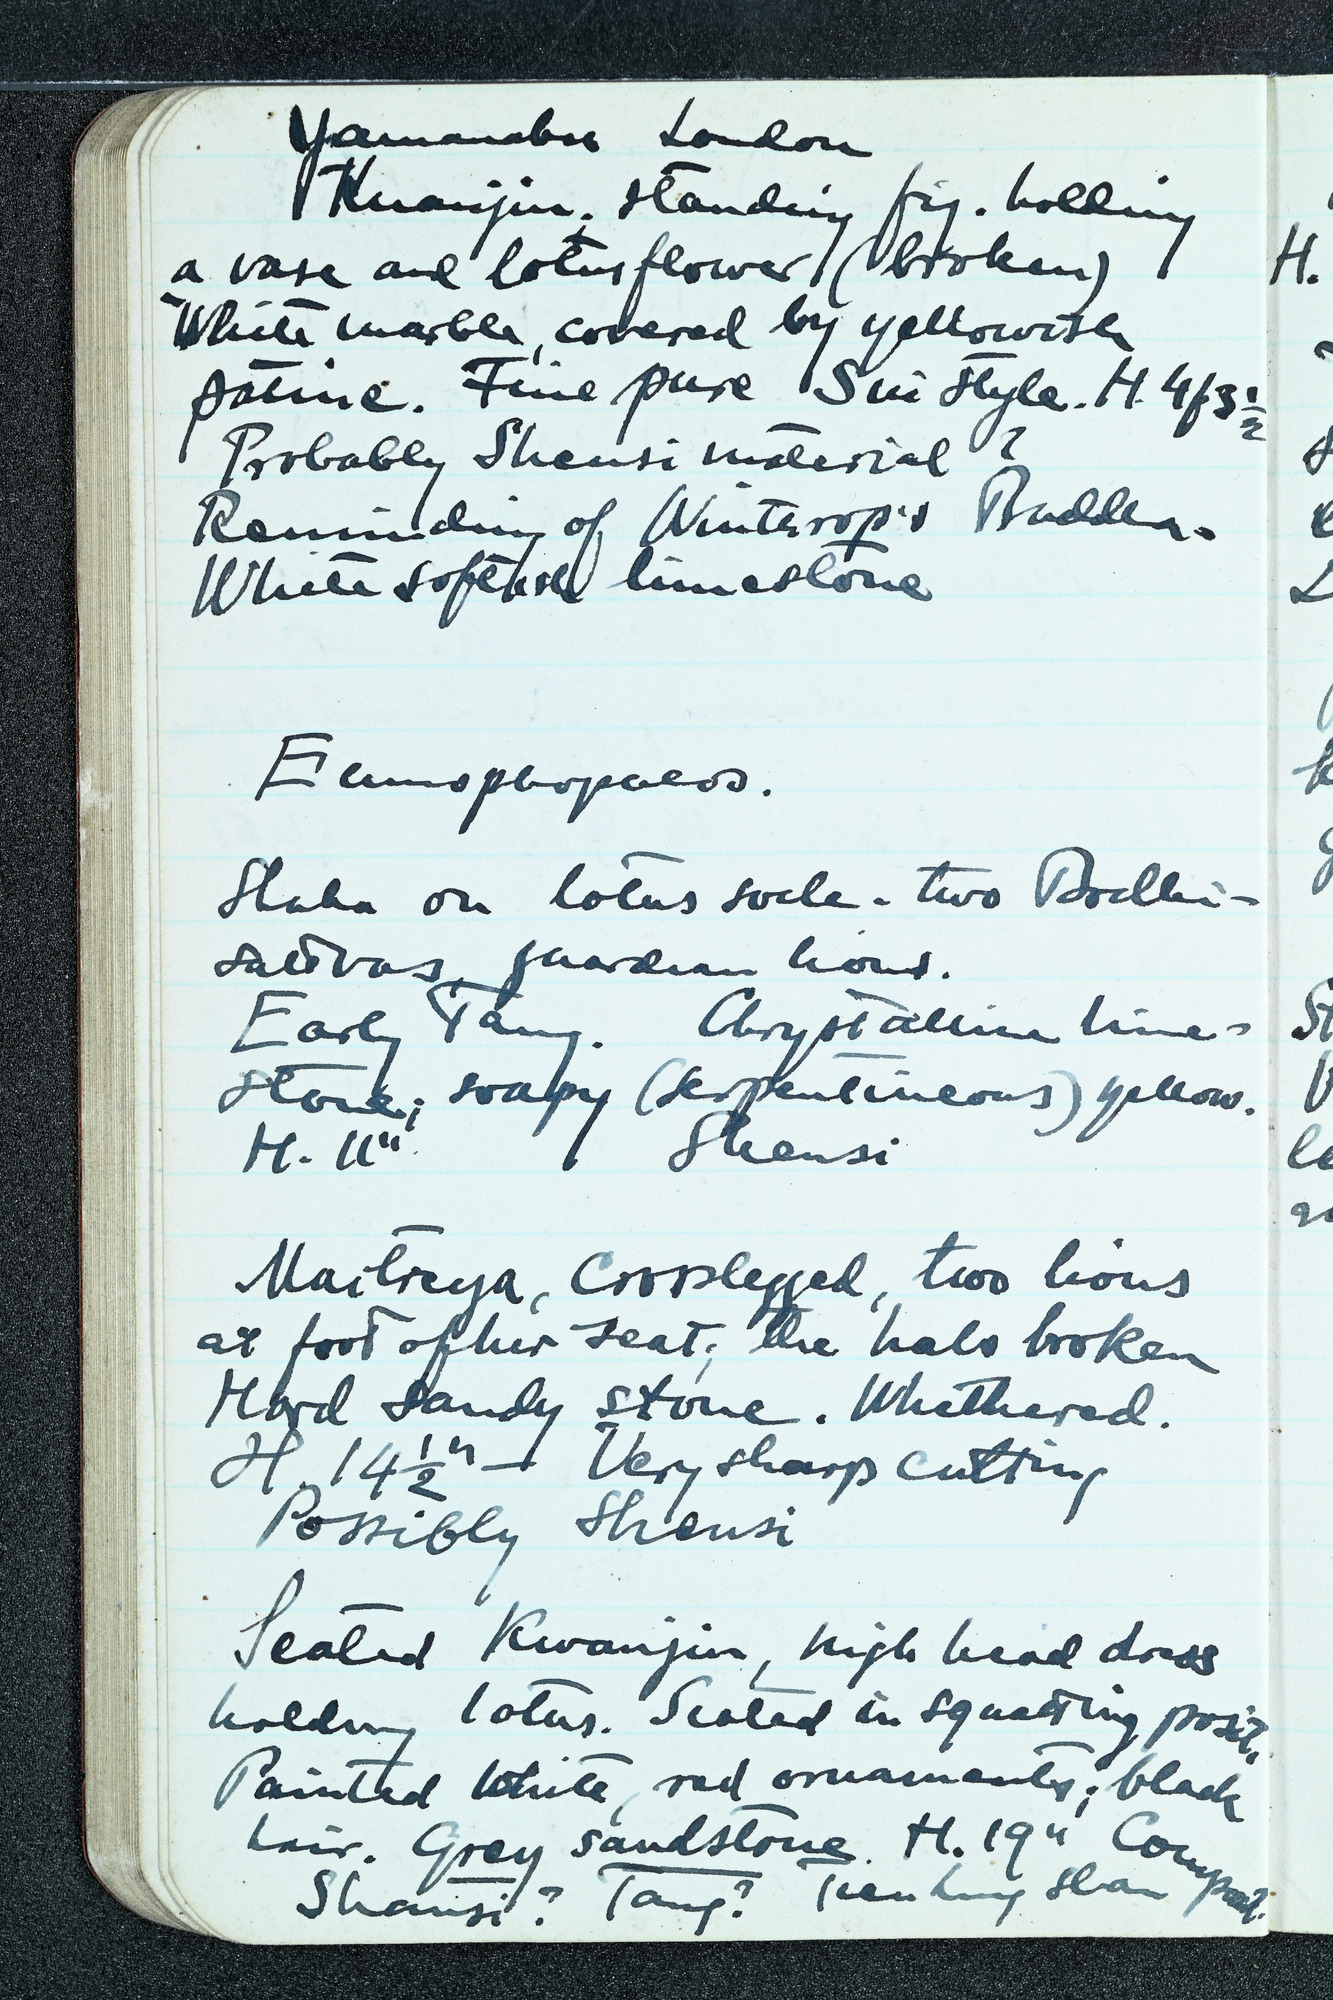 Yamanaka London
Kuanjin, standing fig. holding
a vase and lotusflower (broken)
White marble, covered by yellowish
patine. Fine pure Sui style. H. 4f 3½
Probably Shensi material?
Reminding of Winthrop's Buddha.
White softish limestone
Eumophopoulos.
Shaka on lotus socle. two Bodhi-
sattvas, guardian lions.
Early Tang. Chrystalline lime-
stone; soapy (serpentineous) yellow.
H. 11" Shensi
Maitreya, crosslegged, two lions
at foot of her seat; the halo broken
Hard sandy stone. Whethered.
H. 14½" — Very sharp cutting
Possibly Shensi
Seated Kwanjin, high head dress
holding lotus. Seated in squatting posit.
Painted white, red ornaments; black
hair. Grey sandstone. H. 19" Compact.
Shansi? Tang? Tien lung shan
H.